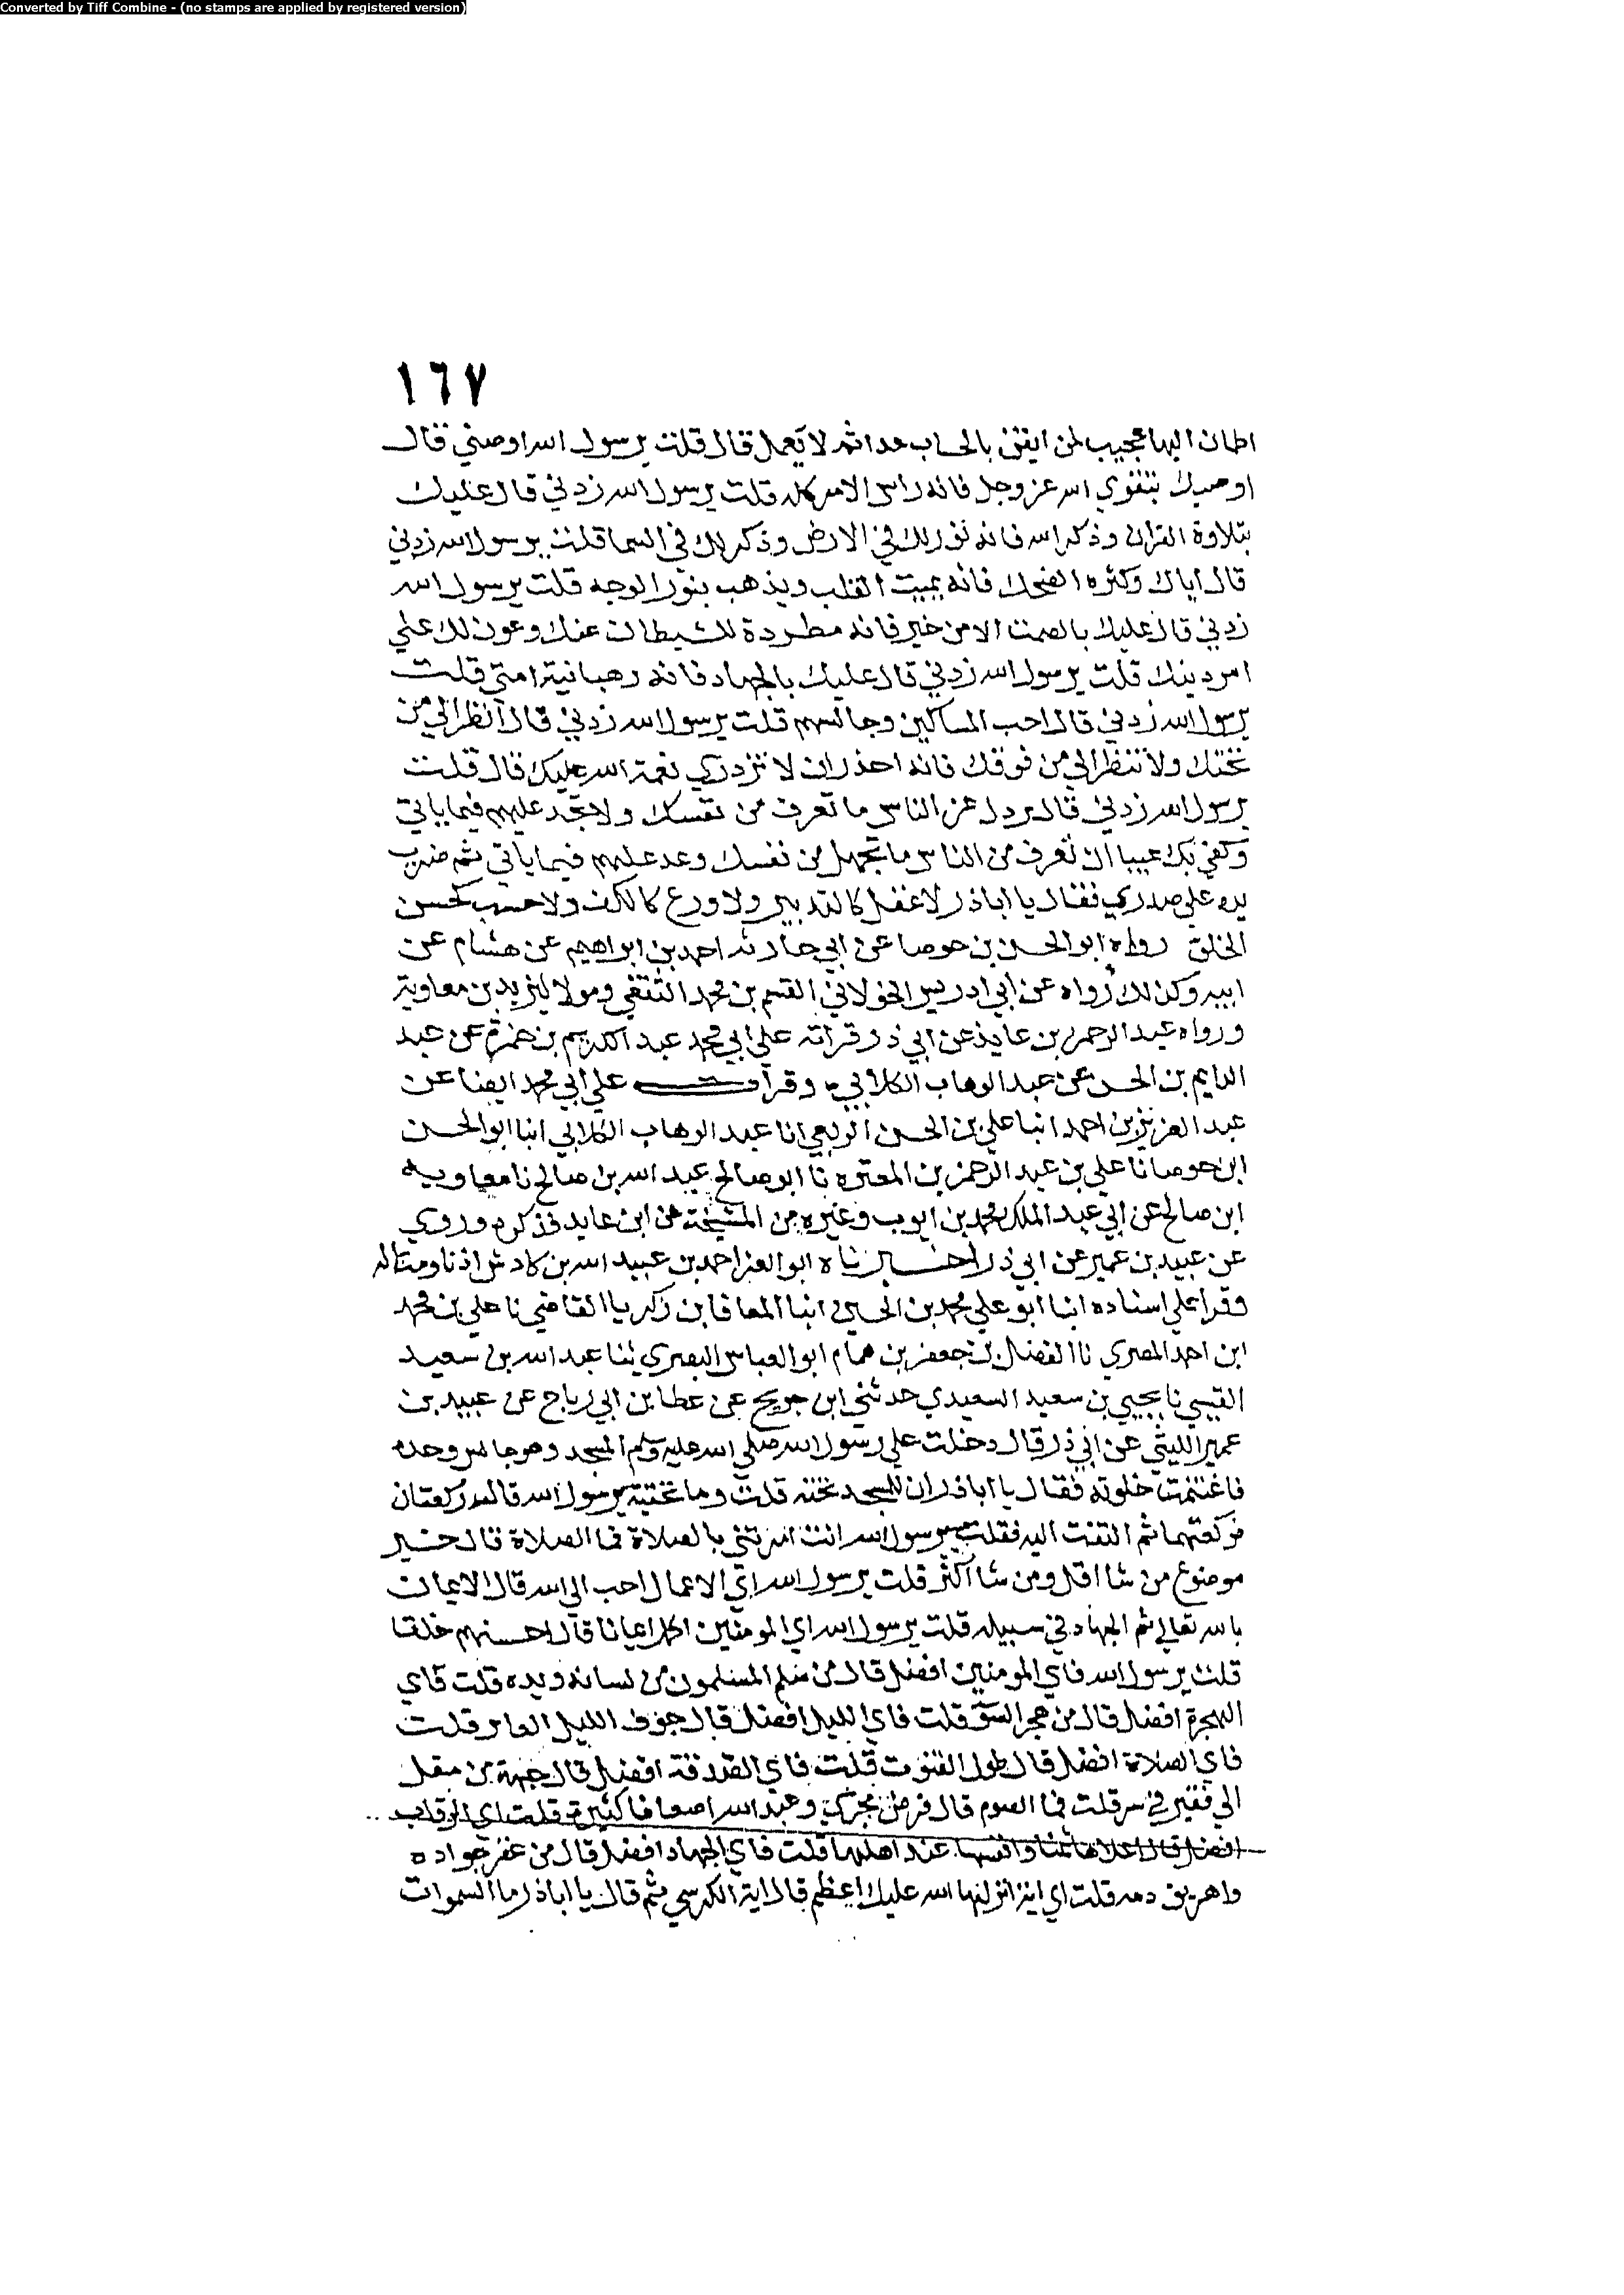 Converted by Tiff Combine - (no stamps are applied by registered version)
١٦٧
اطمان اليها عجيب لمن ايقن بالحساب غدا ثم لا يعمل قال قلت يرسول الله اوصني قال
اوصيك بتقوي الله عز وجل فانه راس الامر كله قلت يرسول الله زدني قال عليك
بتلاوة القران وذكر الله فانه نور لك في الارض وذكر لك في السما قلت يرسول الله زدني
قال اياك وكثره الضحك فانه يميت القلب ويذهب بنور الوجه قلت يرسول الله
زدني قال عليك بالصمت الا من خير فانه مطردة للشيطان عنك وعون لك علي
امر دينك قلت يرسول الله زدني قال عليك بالجهاد فانه رهبانية امتي قلت
يرسول الله زدني قال احب المساكين وجالسهم قلت يرسول الله زدني قال انظر الي من
تحتك ولا تنظر الي من فوقك فانه احذر ان لا تزدري نعمة الله عليك قال قلت
يرسول الله زدني قال يردك عن الناس ما تعرف من نفسك ولا تجد عليهم فيما ياتي
وكفي بك عيبا ان تعرف من الناس ما تجهل من نفسك وعد عليهم فيما ياتي ثم ضرب
يده علي صدري فقال يا اباذر لا عقل كالتدبير ولا ورع كالكف ولا حسب كحسن
الخلق رواه ابو الحسن بن حوصا عن ابي حارثه احمد بن ابراهيم عن هشام عن
ابيه وكذلك رواه عن ابي ادريس الخولاني القسم بن محمد الثقفي ومولا ليزيد بن معاوية
ورواه عبد الرحمن بن عايذ عن ابي ذر قراته علي ابي محمد عبد الكريم بن حمزة عن عبد
الدايم بن الحسن عن عبد الوهاب الكلابي وقرات علي ابي محمد ايضا عن
عبد العزيز بن احمد انبا علي بن الحسن الربعي انا عبد الوهاب الكلابي انبا ابو الحسن
ابن حوصا نا علي بن عبد الرحمن بن المغيره نا ابو صالح عبد الله بن صالح نا معاويه
ابن صالح عن ابي عبد الملك محمد بن ايوب وغيره من المشيخة عن ابن عايد فذكره وروي
عن عبيد بن عمير عن ابي ذر اخبرناه ابو العز احمد بن عبيد الله بن كادش اذنا ومناوله
وقرا علي اسناده انبا ابو علي محمد بن الحسين انبا المعافا بن زكريا القاضي نا علي بن محمد
ابن احمد المصري نا الفضل بن جعفر بن همام ابو العباس البصري ثنا عبد الله بن سعيد
القيسي نا يحيي بن سعيد السعيدي حدثني ابن جريج عن عطا بن ابي رباح عن عبيد بن
عمير الليثي عن ابي ذر قال دخلت علي رسول الله صلي الله عليه وسلم المسجد وهو جالس وحده
فاغتنمت خلوته فقال يا اباذر ان للمسجد تحته قلت وما تحتيته يرسول الله قال ركعتان
فركعتهما ثم التفت اليه فقلت يرسول الله انت امرتني بالصلاة فما الصلاة قال خير
موضوع من شا اقل ومن شا اكثر قلت يرسول الله اي الاعمال احب الي الله قال الايمان
بالله تعالي ثم الجهاد في سبيله قلت يرسول الله اي المومنين اكمل ايمانا قال احسنهم خلقا
قلت يرسول الله فاي المومنين افضل قال من سلم المسلمون من لسانه ويده قلت فاي
الهجرة افضل قال من هجر السو قلت فاي الليل افضل قال جوف الليل الغابر قلت
فاي الصلاة افضل قال طول القنوت قلت فاي الصدقة افضل قال جهد من مقل
الي فقير في سر قلت فما الصوم قال فرض مجزي وعند الله اضعافا كثيرة قلت اي الرقاب
افضل قال اغلاها ثمنا وانفسها عند اهلها قلت فاي الجهاد افضل قال من عقر جواده
واهريق دمه قلت اي اية انزلها الله عليك اعظم قال اية الكرسي ثم قال يا اباذر ما السموات